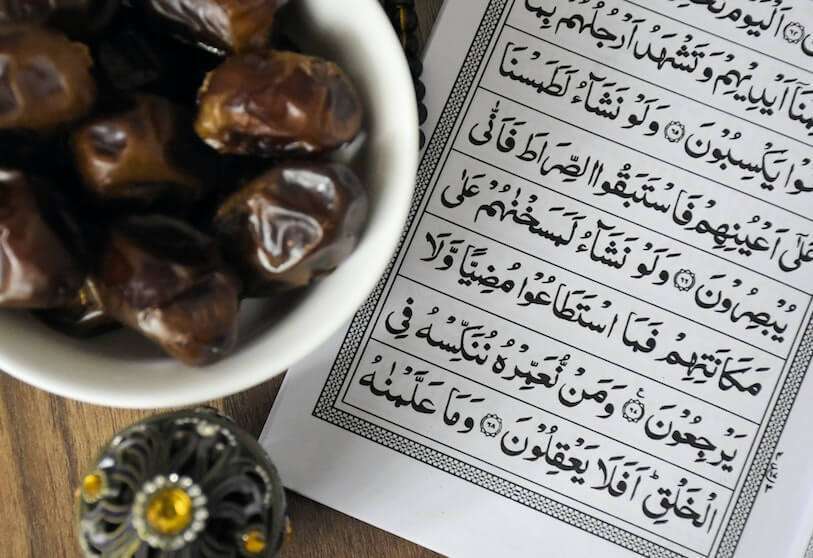 اَلْيَوْمَ
اَيْدِيْهِمْ وَتَشْهَدُ اَرْجُلُهُمْ بِمَا
يَكْسِبُوْنَ ۝٦٥ وَلَوْ نَشَآءُ لَطَمَسْنَا
عَلٰٓى اَعْيُنِهِمْ فَاسْتَبَقُوا الصِّرَاطَ فَاَنّٰى
يُبْصِرُوْنَ ۝٦٦ وَلَوْ نَشَآءُ لَمَسَخْنٰهُمْ عَلٰى
مَكَانَتِهِمْ فَمَا اسْتَطَاعُوْا مُضِيًّا وَّلَا
يَرْجِعُوْنَ ۝٦٧ؑ وَمَنْ نُّعَمِّرْهُ نُنَكِّسْهُ فِى
الْخَلْقِؕ اَفَلَا يَعْقِلُوْنَ ۝٦٨ وَمَا عَلَّمْنٰهُ